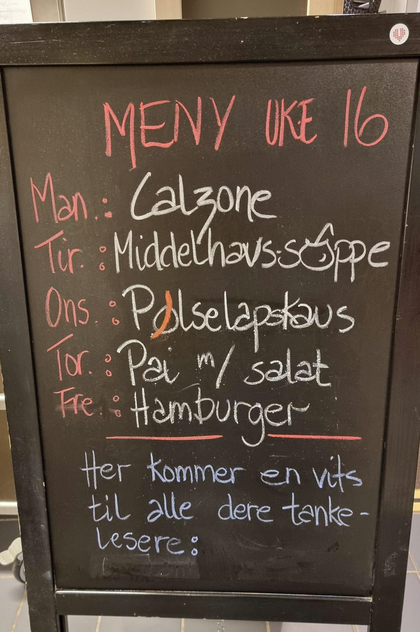 MENY UKE 16
Man.: Calzone
Tir.: Middelhavs-suppe
Ons.: Pølselapskaus
Tor.: Pai m/ salat
Fre.: Hamburger
Her kommer en vits
til alle dere tanke-
lesere: